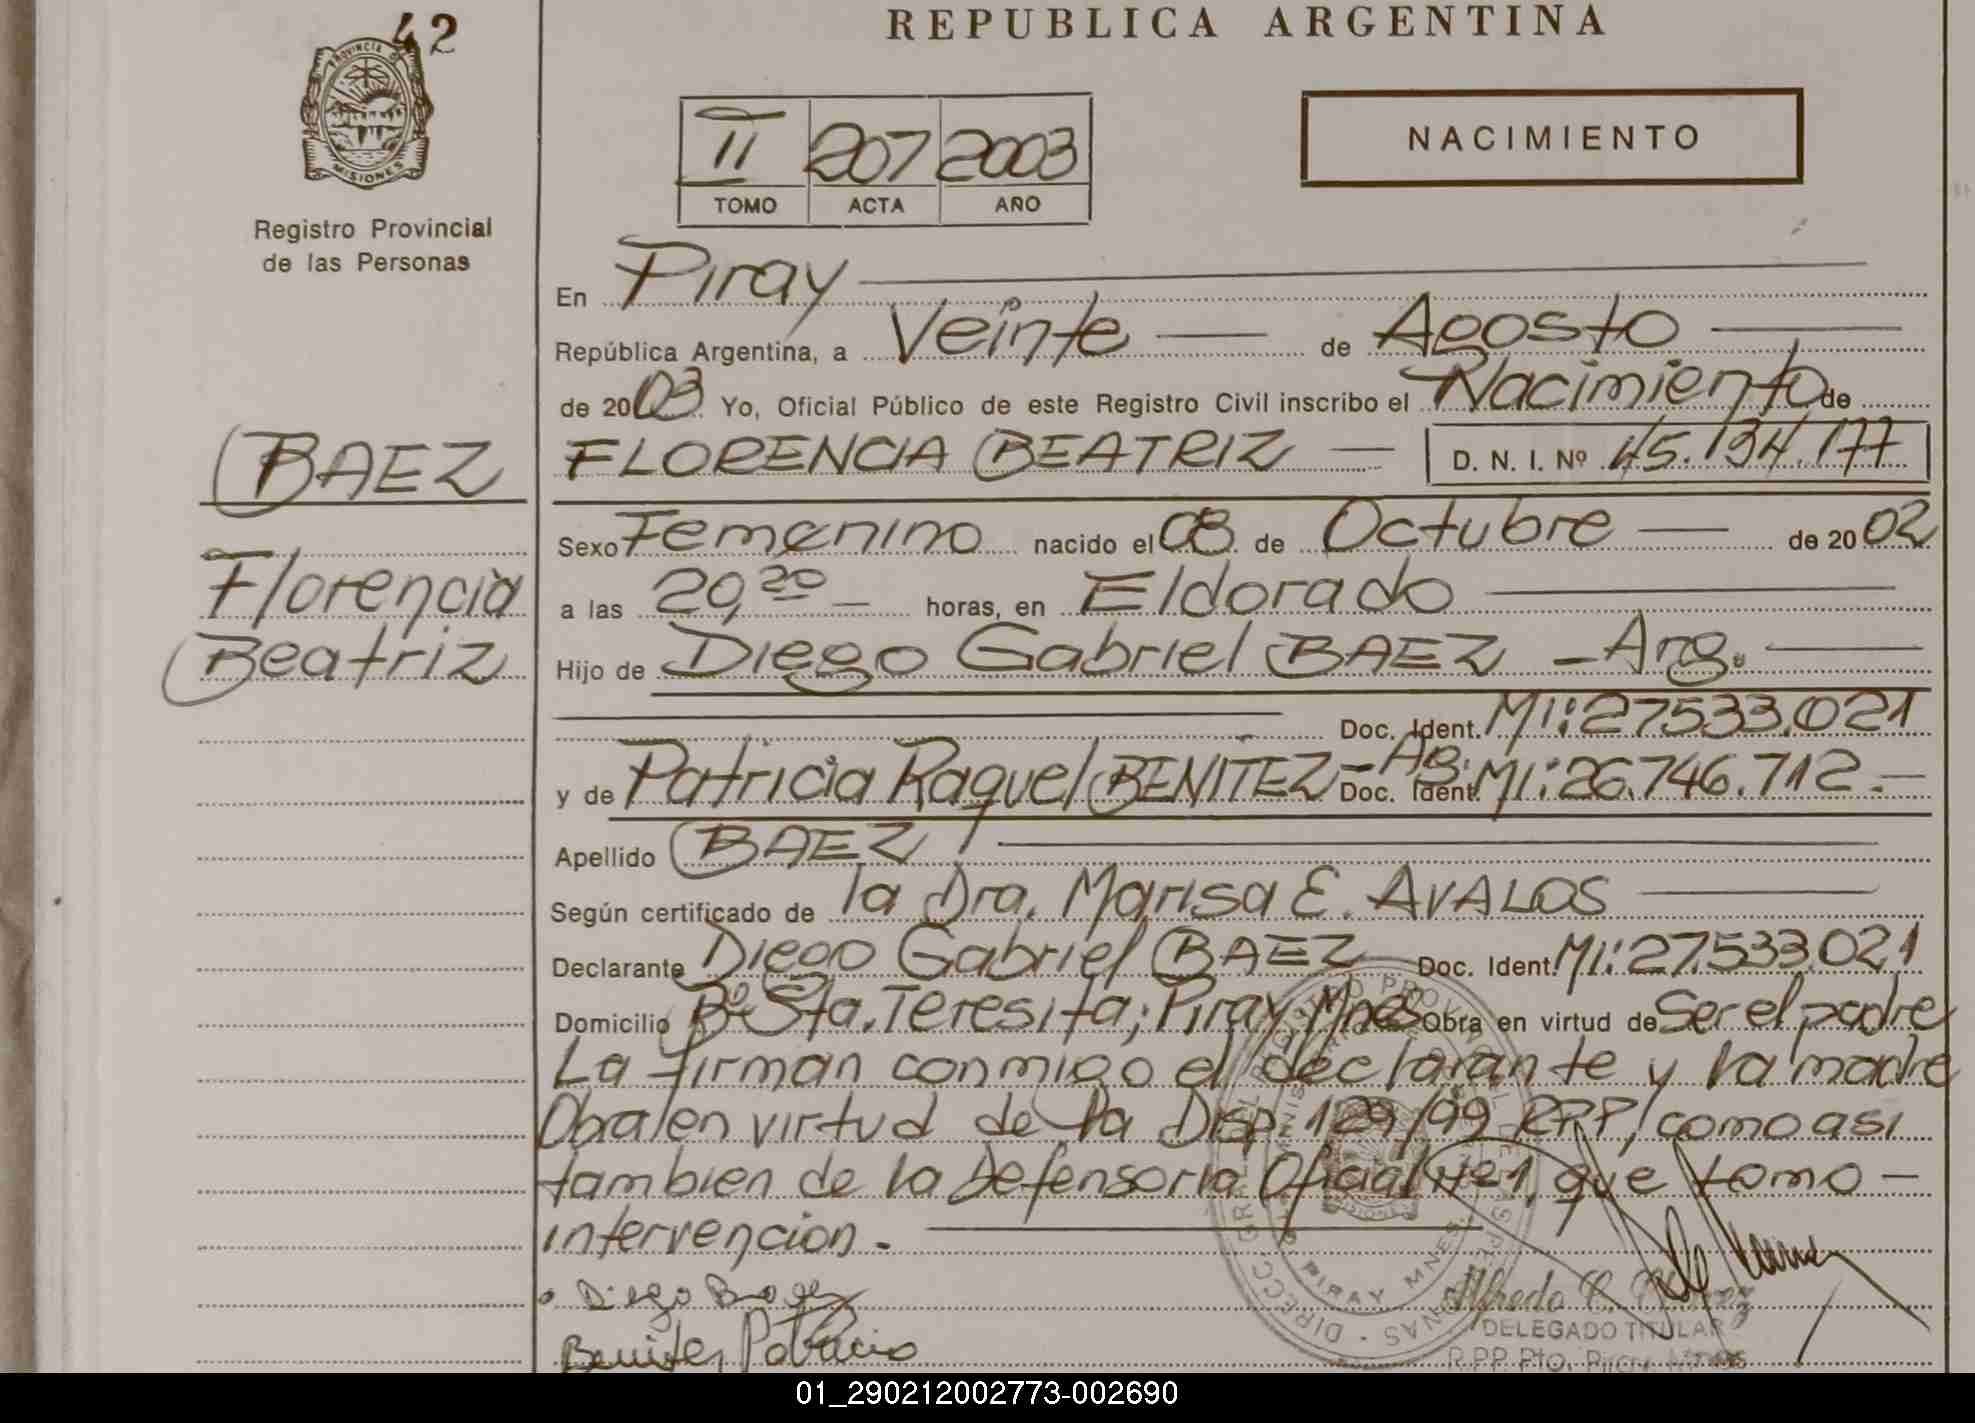 42
REPUBLICA ARGENTINA
PROVINCIA DE
MISIONES
Registro Provincial
de las Personas
II 207 2003
TOMO ACTA AÑO
NACIMIENTO
En Piray
República Argentina, a Veinte de Agosto
de 2003 Yo, Oficial Público de este Registro Civil inscribo el Nacimiento de
BAEZ
Florencia
Beatriz
FLORENCIA BEATRIZ D. N. I. Nº 45.134.177
Sexo Femenino nacido el 08 de Octubre de 2002
a las 20,20 horas, en Eldorado
Hijo de Diego Gabriel BAEZ - Arg.
Doc. Ident. MI: 27.533.021
y de Patricia Raquel BENITEZ - Ag. Doc. Ident. MI: 26.746.712.-
Apellido BAEZ
Según certificado de la Dra. Marisa E. AVALOS
Declarante Diego Gabriel BAEZ Doc. Ident. MI: 27.533.021
Domicilio Bº Sta. Teresita; Piray, Mnes Obra en virtud de Ser el padre
La firman conmigo el declarante y la madre
Obra en virtud de la Disp. 129/99 RPP, como asi
tambien de la Defensoria Oficial Nº 1, que tomo -
intervencion.-
Diego Baez
Benitez Patricia
PIRAY MNES.
Alfredo C.
DELEGADO TITULAR
R.P.P. Pto. Piray, Mnes
01_290212002773-002690